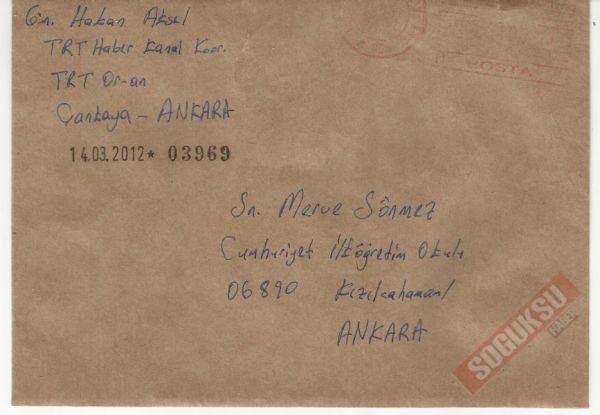 Gön. Hakan Aksel
TRT Haber Kanal Koor.
TRT Or-an
Çankaya - ANKARA
14.03.2012* 03969
POSTA
Sn. Merve Sönmez
Cumhuriyet İlköğretim Okulu
06890 Kızılcahamam/
ANKARA
SOGUKSU
HABER